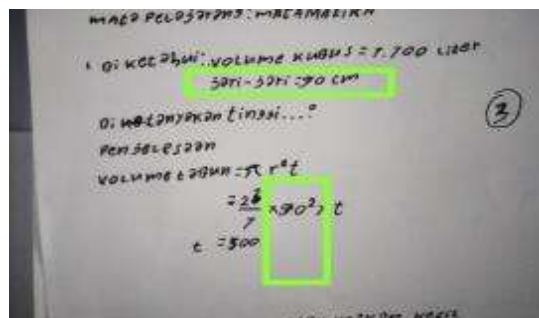 MATA PELAJARAN: MATAMATIKA
1 Diketahui: volume kubus = 7.700 liter
jari-jari = 70 cm
Ditanyakan tinggi...?
③
Penjelesaan
volume tabun = π r²t
= 22/7 × 70², t
t = 500